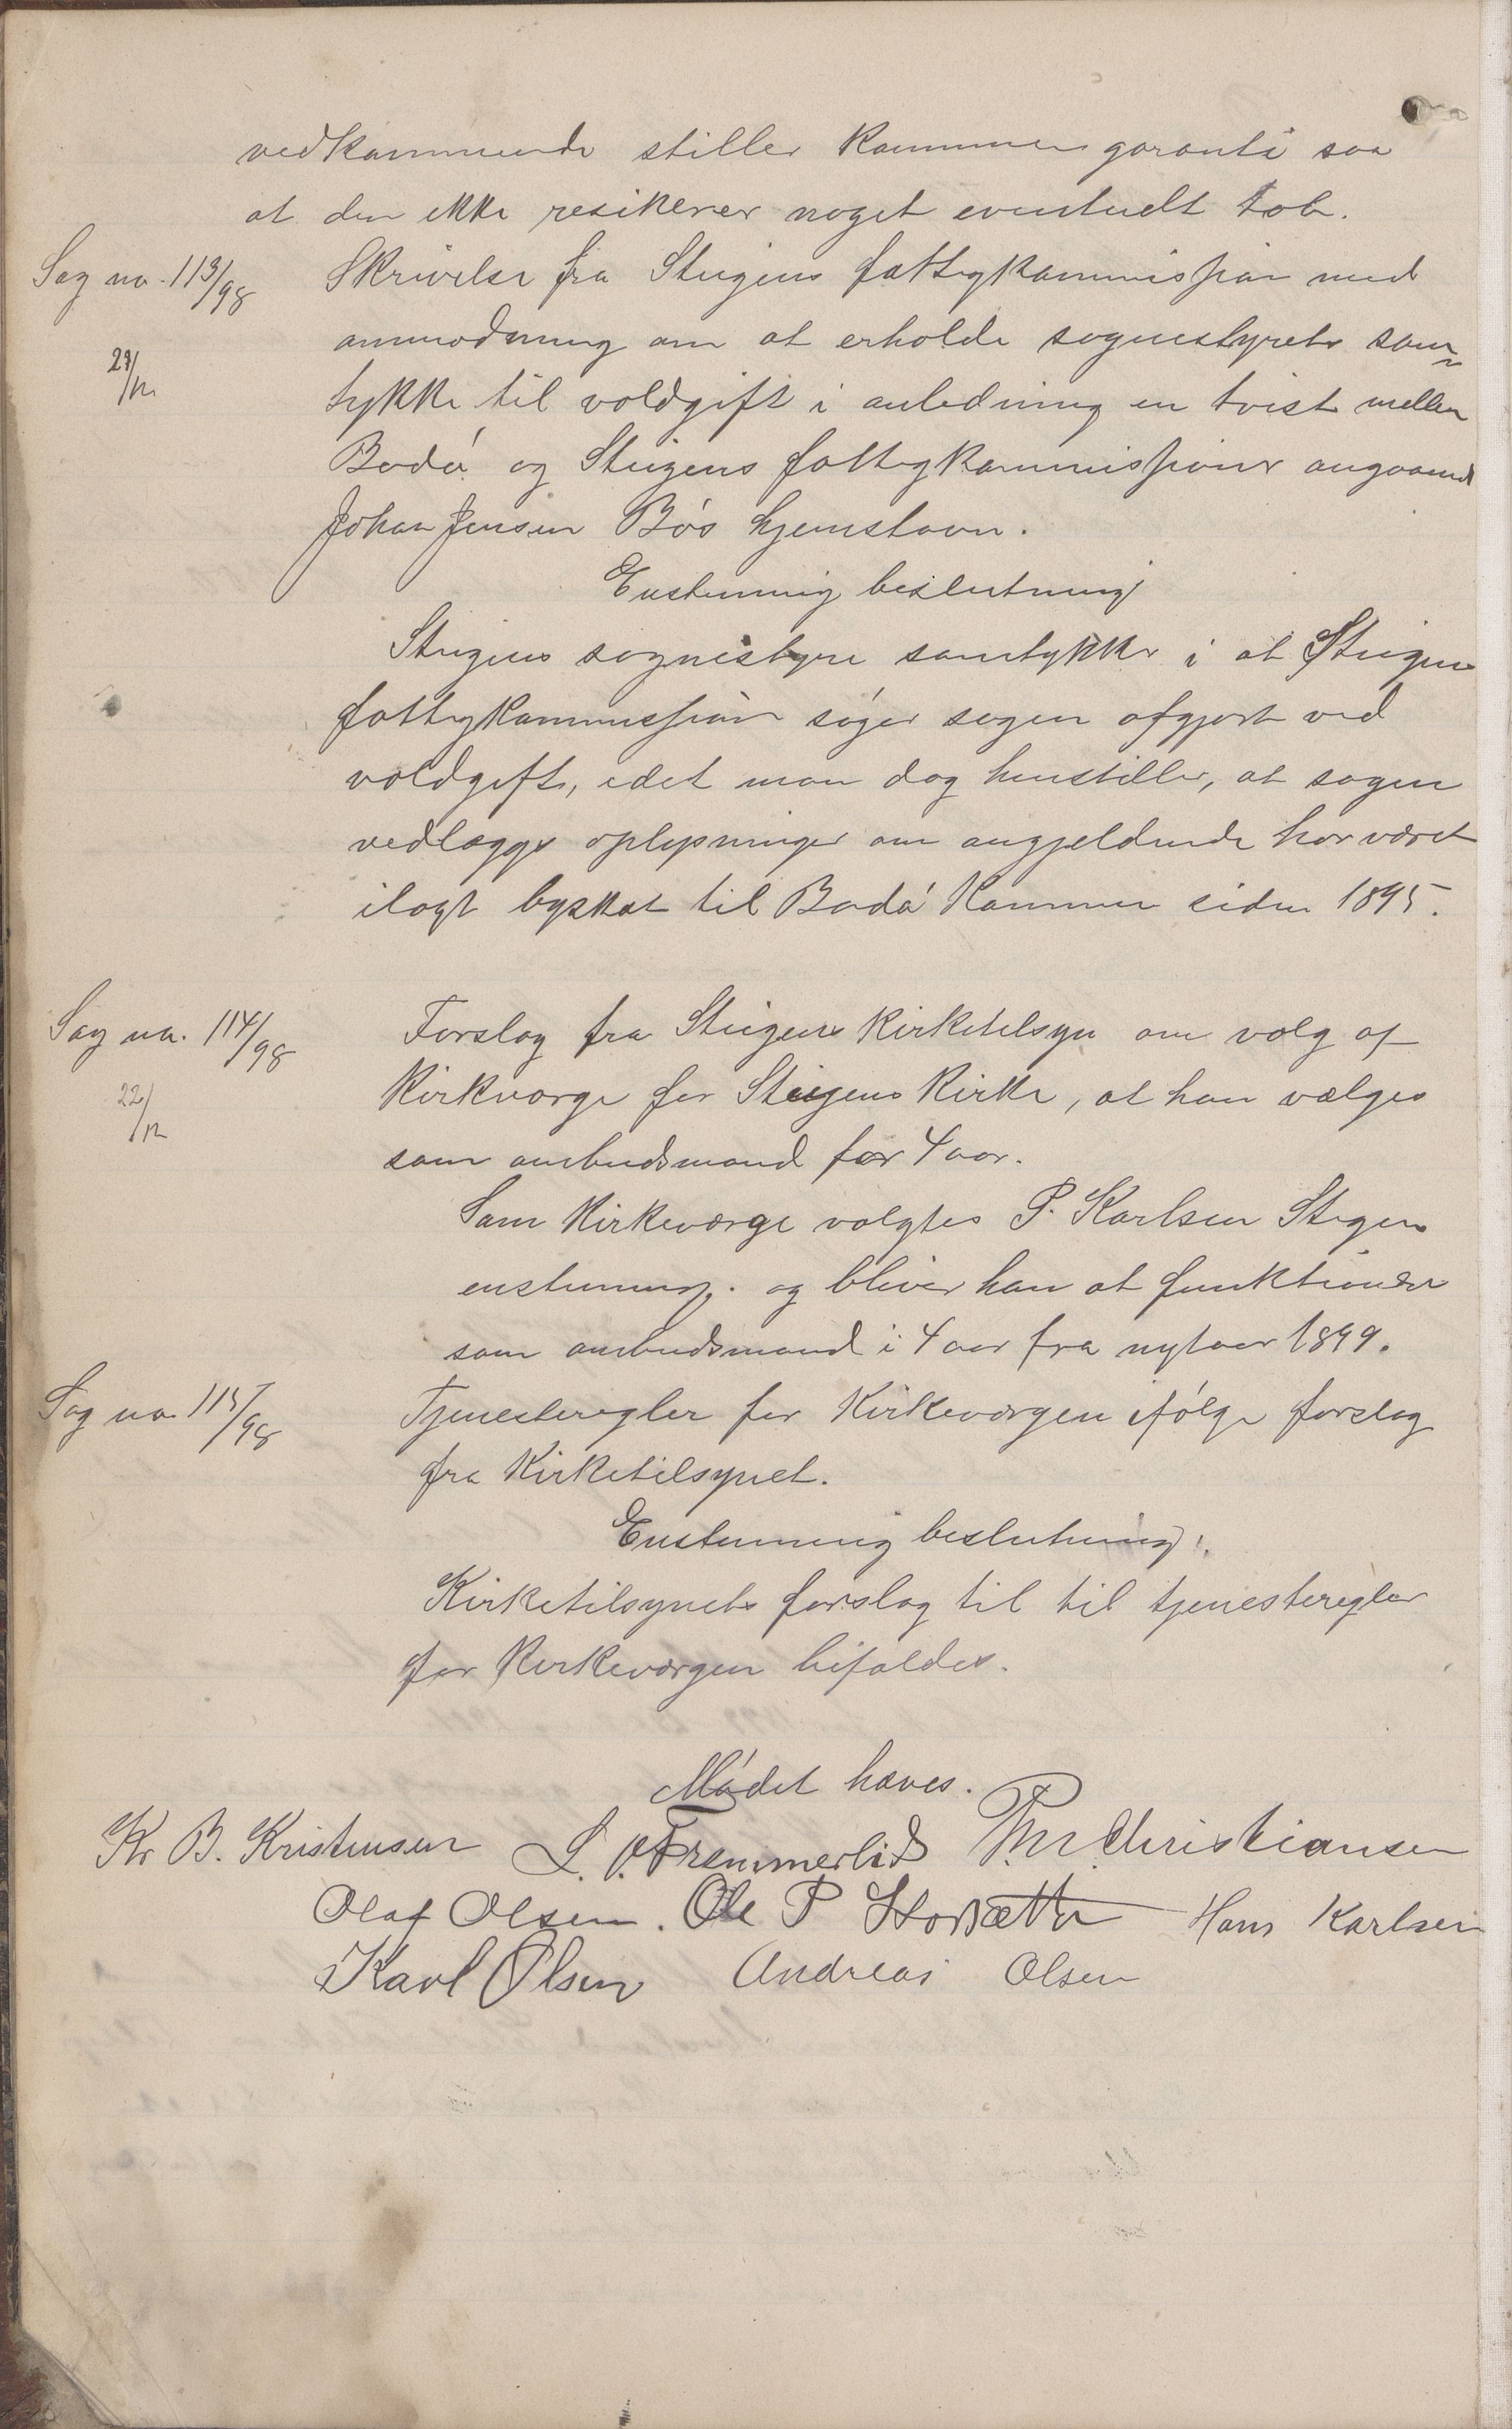 vedkommende stiller kommunen garanti saa
at den ikke resikerer noget eventuelt tab.
Sag no. 113/98
Skrivelse fra Steigens fattigkommission med
anmodning om at erholde sognestyrets sam=
21/12
tykke til voldgift i anledning en tvist mellem
Bodø og Steigens fattigkommissioner angaaende
Johan Jensen Bøs hjemstavn.
Enstemmig beslutning
Steigens sognestyre samtykker i at Steigens
fattigkommission søger sagen afgjort ved
voldgift, idet man dog henstiller, at sagen
vedlægges oplysninger om angjeldende har været
ilagt byskat til Bodø kommune siden 1895.
Sag no. 114/98
Forslag fra Steigens kirketilsyn om valg af
22/12
Kirkværge for Steigens kirke, at han vælges
som ombudsmand for 4 aar.
Som kirkeværge valgtes P. Karlsen Steigen
enstemmig. og bliver han at funktionere
som ombudsmand i 4 aar fra nytaar 1899.
Sag no. 115/98
Tjenesteregler for kirkeværgen ifølge forslag
fra kirketilsynet.
Enstemmig beslutning:
Kirketilsynets forslag til til tjenesteregler
for kirkeværgen bifaldes.
Mødet hæves.
Kr B. Kristensen L. Fremmerlid Chr Christiansen
Olaf Olsen. Ole P Storsætter Hans Karlsen
Karl Olsen Andreas Olsen